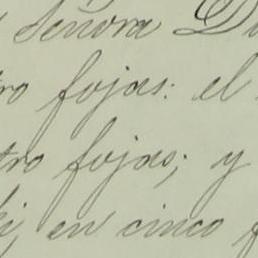 Señora D
tro fojas: el
tro fojas; y
en cinco f